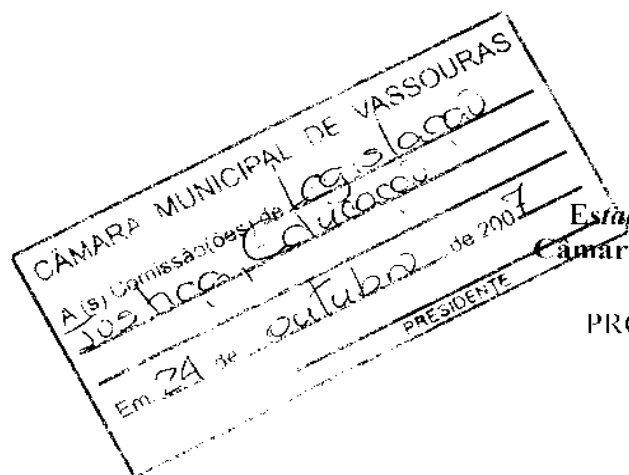 CÂMARA MUNICIPAL DE VASSOURAS
A (s) Comissão(ões) de Legislação
Justiça Educação
Em 24 de outubro de 2007
PRESIDENTE
Está
Câmar
PRO